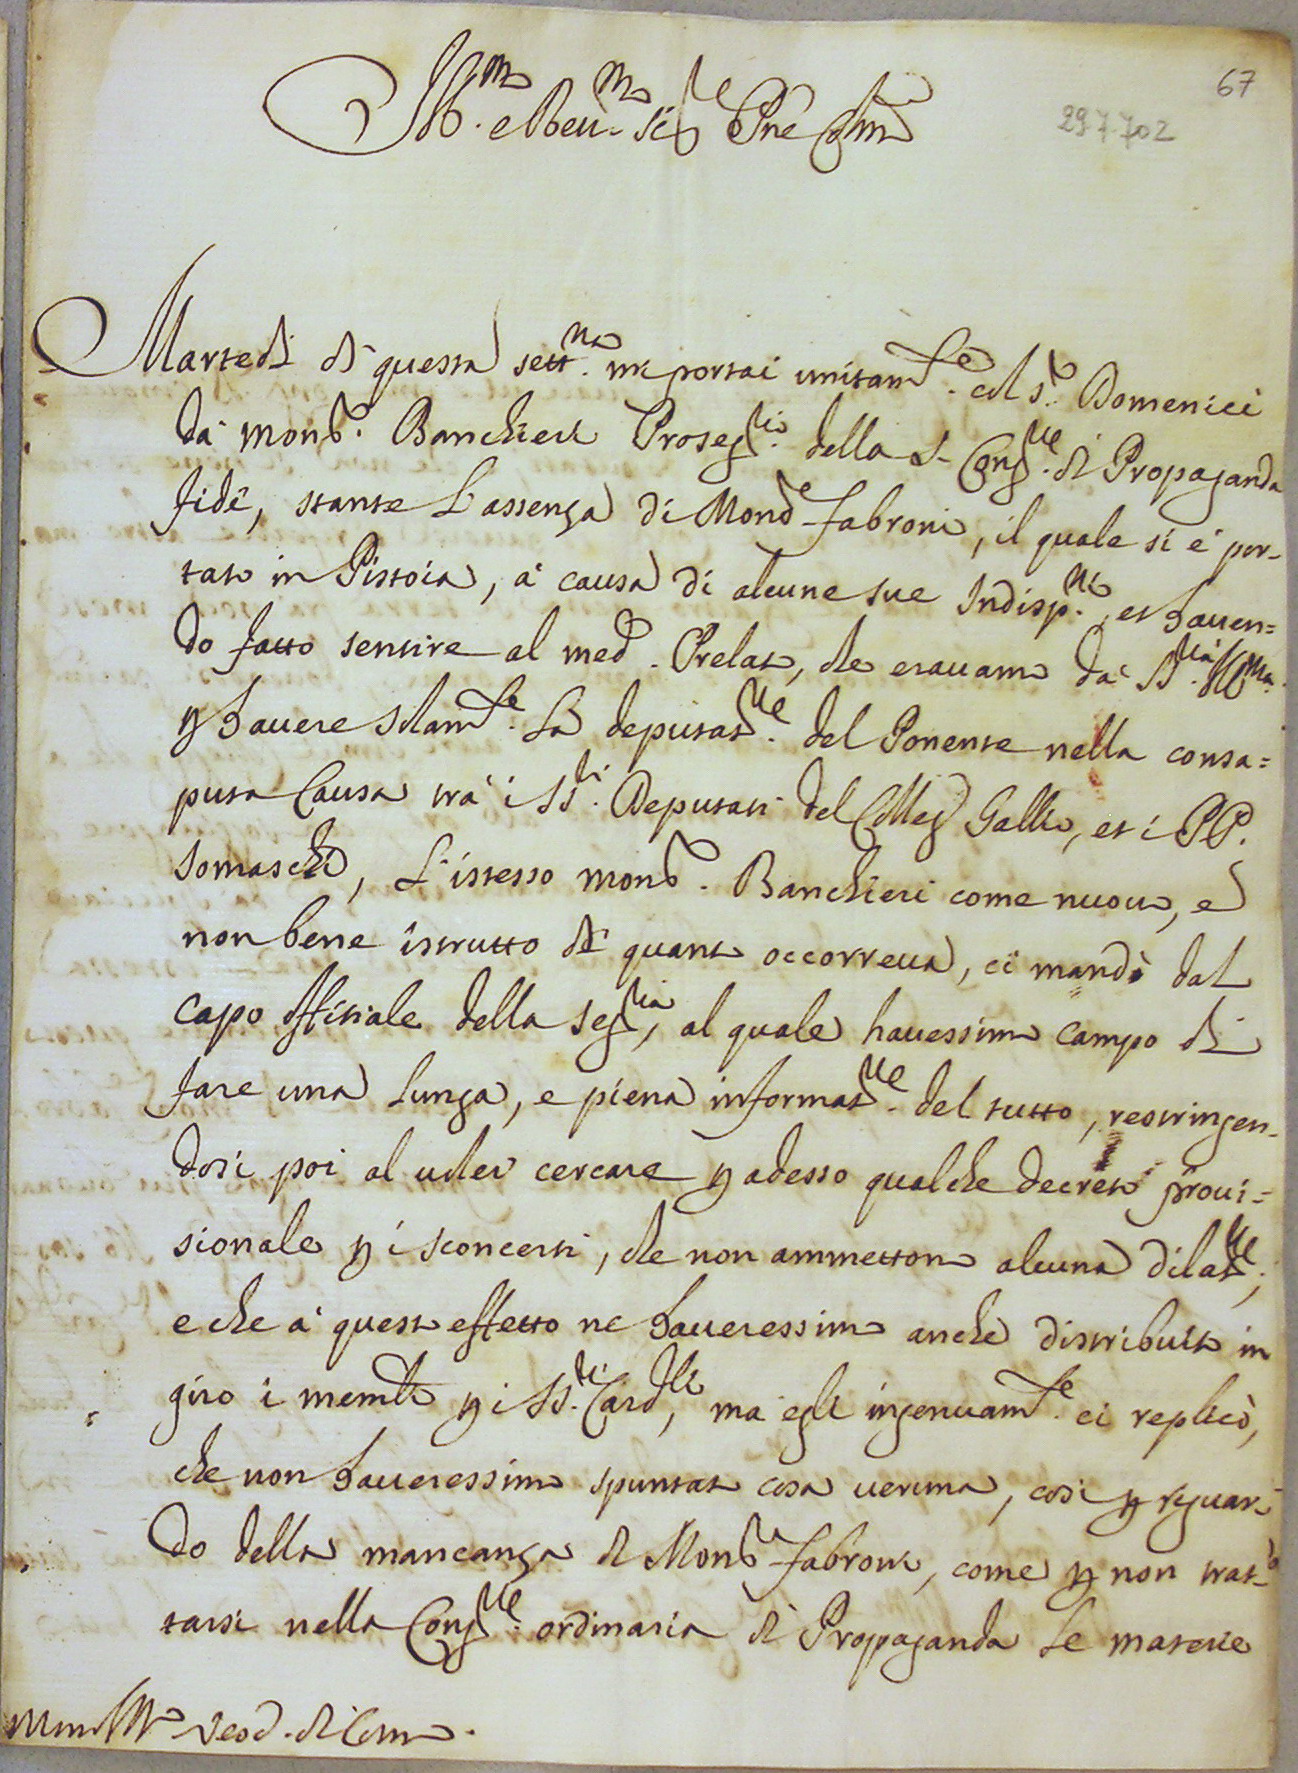 67
297.702
Ill.mo e Reu.mo Sig.re Pne Col.mo
Martedi di questa sett.na mi portai unitam.te col S.r Domenici
da Mons.r Banchieri Proseg.rio della S. Cong.ne di Propaganda
fide, stante l'assenza di Mons.r Fabroni, il quale si è por-
tato in Pistoia, à causa di alcune sue Indisp.ni, et hauen=
do fatto sentire al med.o Prelato, che erauamo da S.S.ria Ill.ma
p hauere solam.te la deputat.ne del Ponente nella consa=
puta Causa trà i SS.ri Deputati del Colleg.o Gallio, et i PP.
Somaschi, l'istesso Mons.r Banchieri come nuouo, e
non bene istrutto di quanto occorreua, ci mandò dal
capo offitiale della Seg.ria, al quale hauessimo campo di
fare una lunga, e piena informat.ne del tutto, restringen-
dosi poi al uoler cercare p adesso qualche decreto proui=
sionale p i sconcerti, che non ammettono alcuna dilat.ne;
e che à questo effetto ne haueressimo anche distribuito in
giro i memli p i SS.ri Card.li, ma egli ingenuam.te ci replicò,
che non haueressimo spuntato cosa ueruna, cosi p riguar-
do della mancanza di Mons.r Fabroni, come p non trat-
tarsi nella Cong.ne ordinaria di Propaganda le materie
di Como.